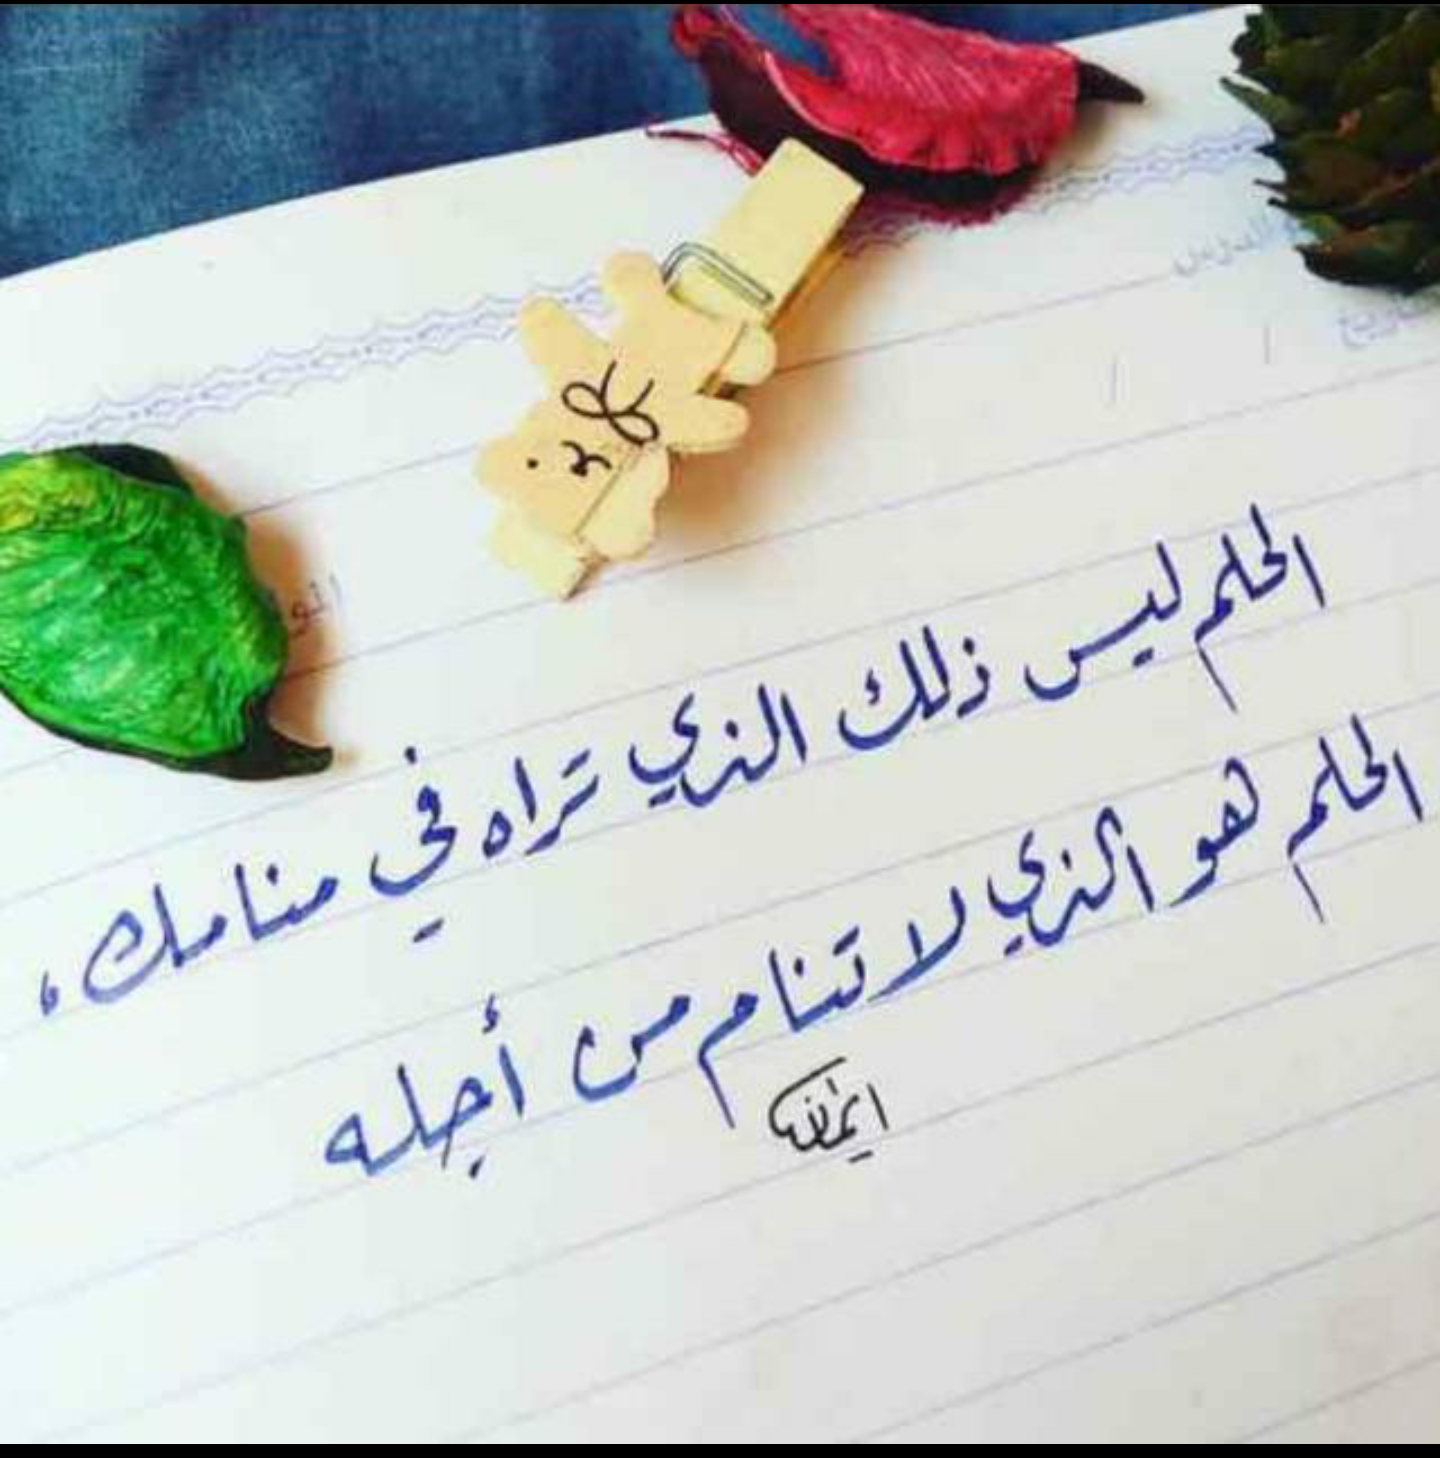 الحلم ليس ذلك الذي تراه في منامك،
الحلم هو الذي لا تنام من أجله
ايمان